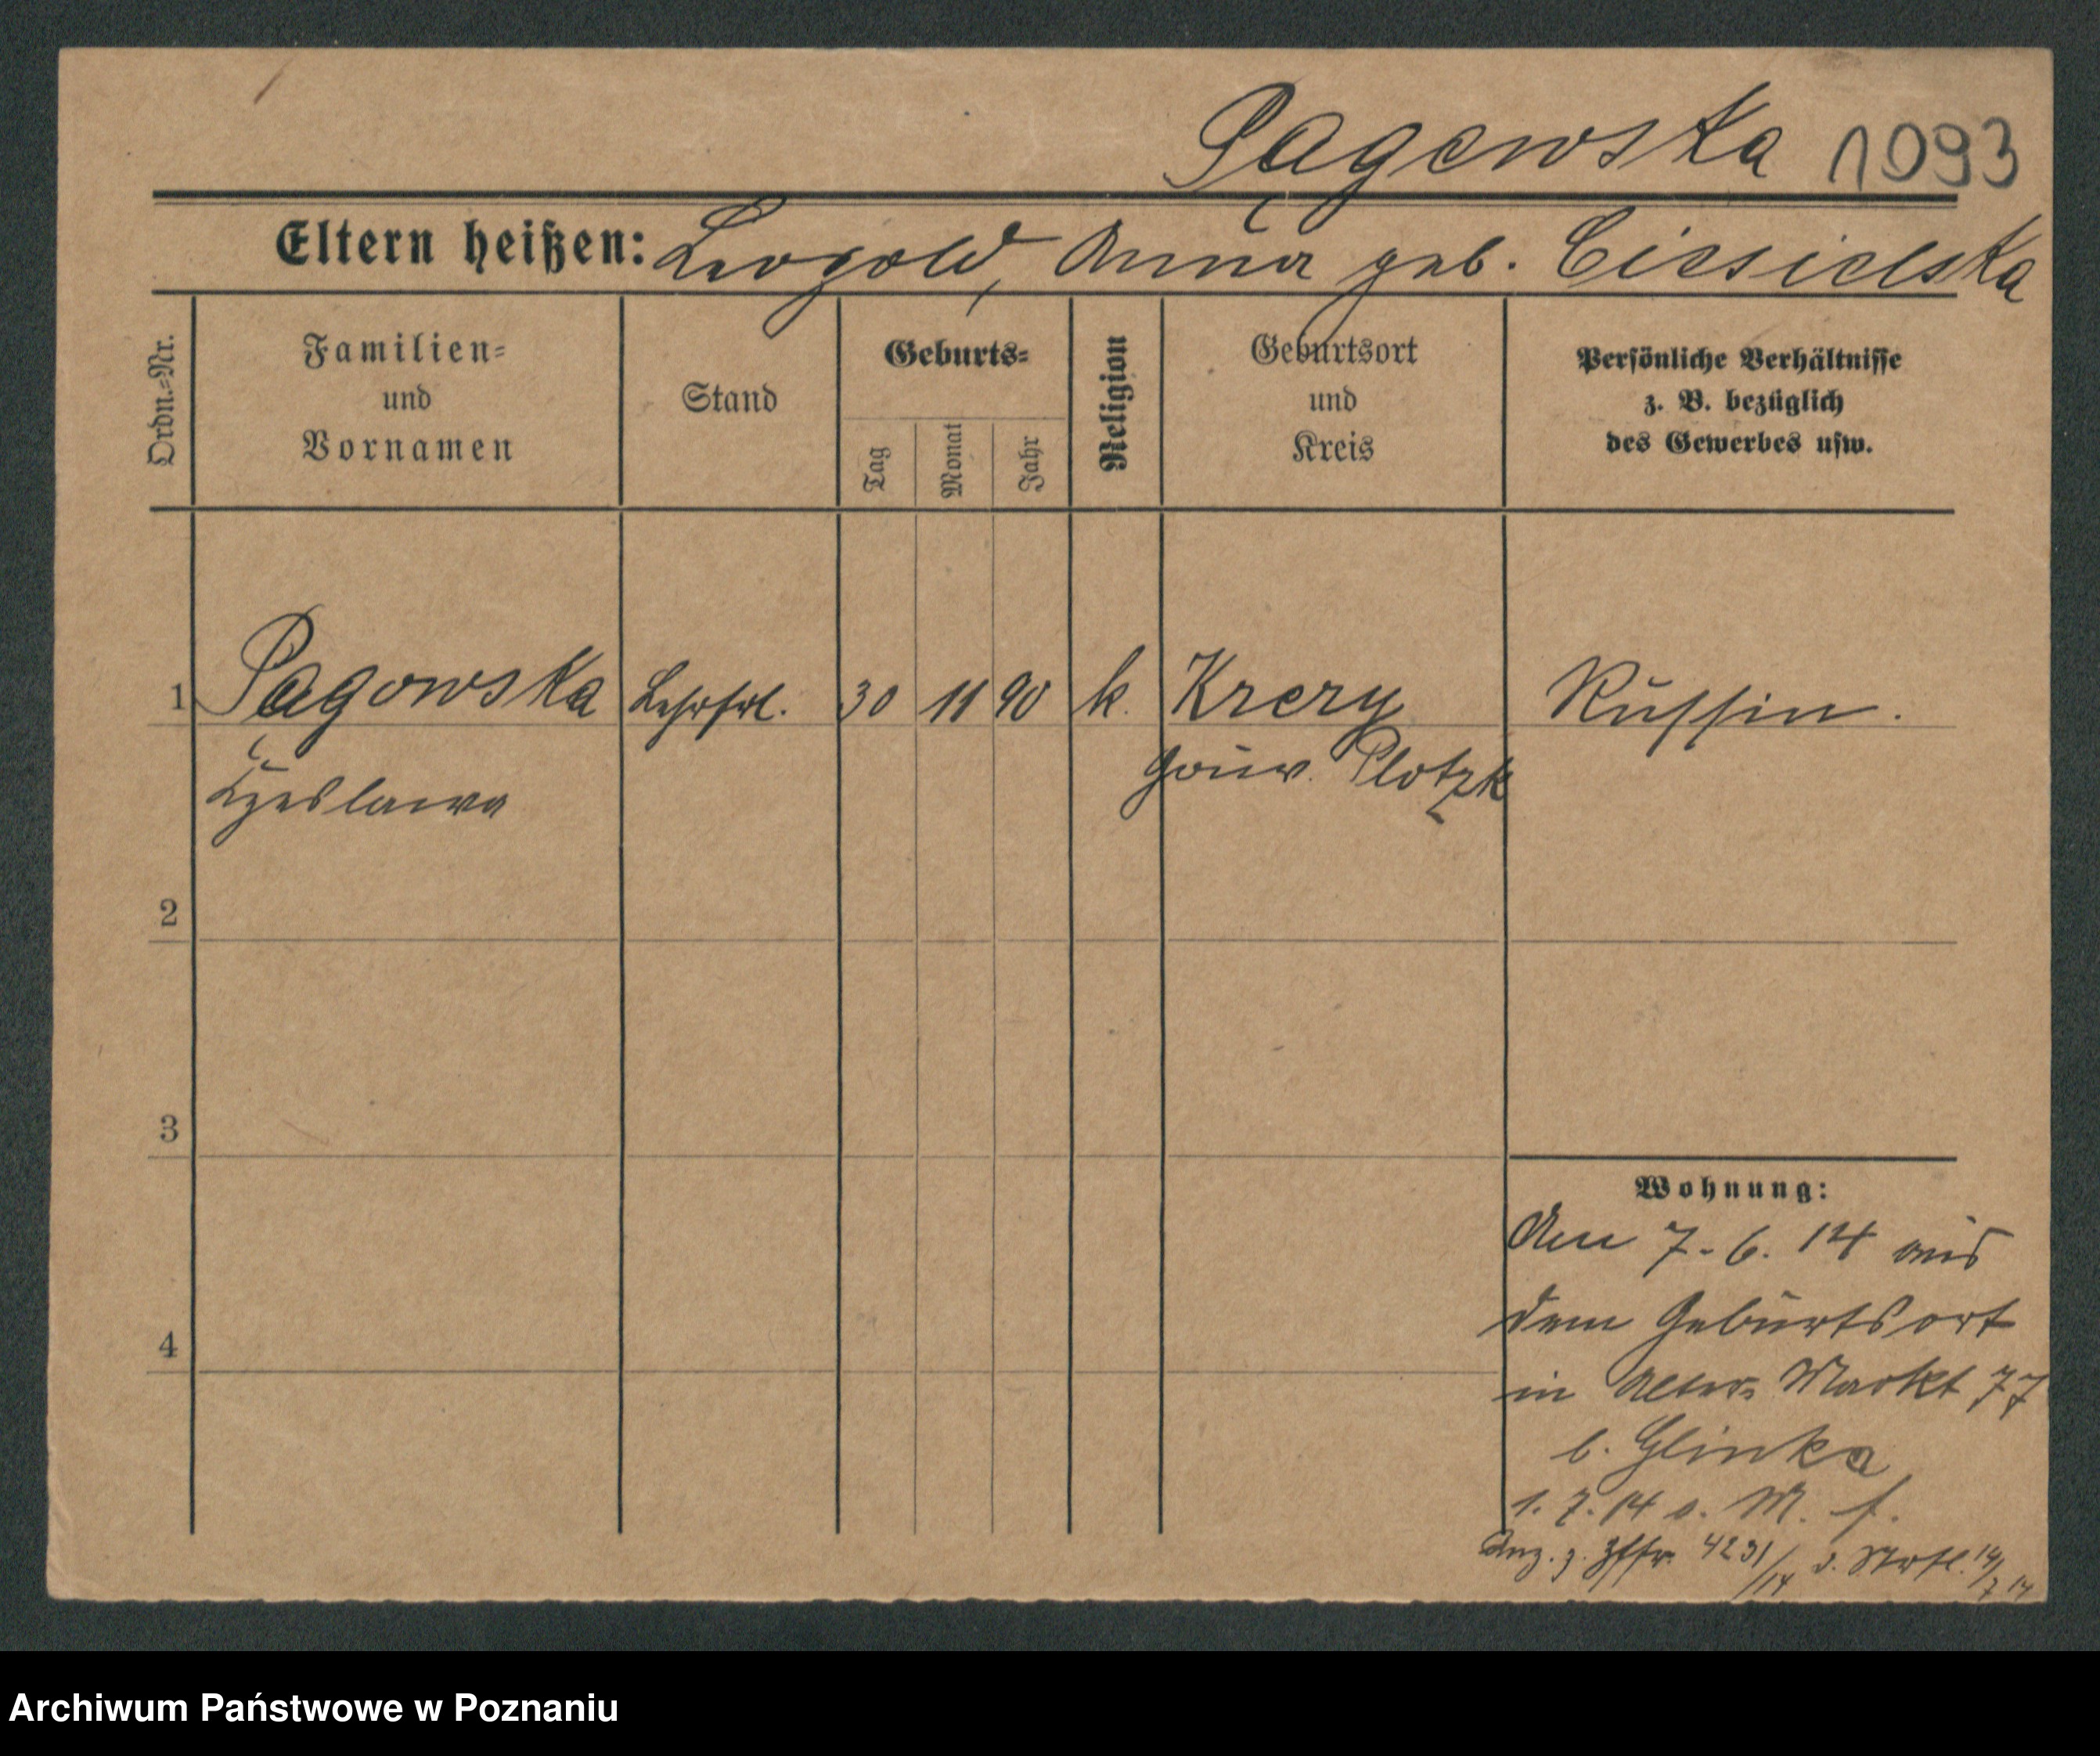 Pągowska 1093
Eltern heißen: Leopold, Anna geb. Ciesielska
Ordn.-Nr.
Familien-
und
Vornamen
Stand
Geburts-
Tag
Monat
Jahr
Religion
Geburtsort
und
Kreis
Persönliche Verhältnisse
z. B. bezüglich
des Gewerbes usw.
1 Pągowska Lehrfrl. 30 11 90 k. Krery Russin.
Czeslawa Gouv. Plotzk
2
3
4
Wohnung:
Am 7. 6. 14 aus
dem Geburtsort
in Alter Markt 77
b. Glinka
1. 7. 14 o. M. f.
Anz. z. 4231/14 14/7 14
Archiwum Państwowe w Poznaniu